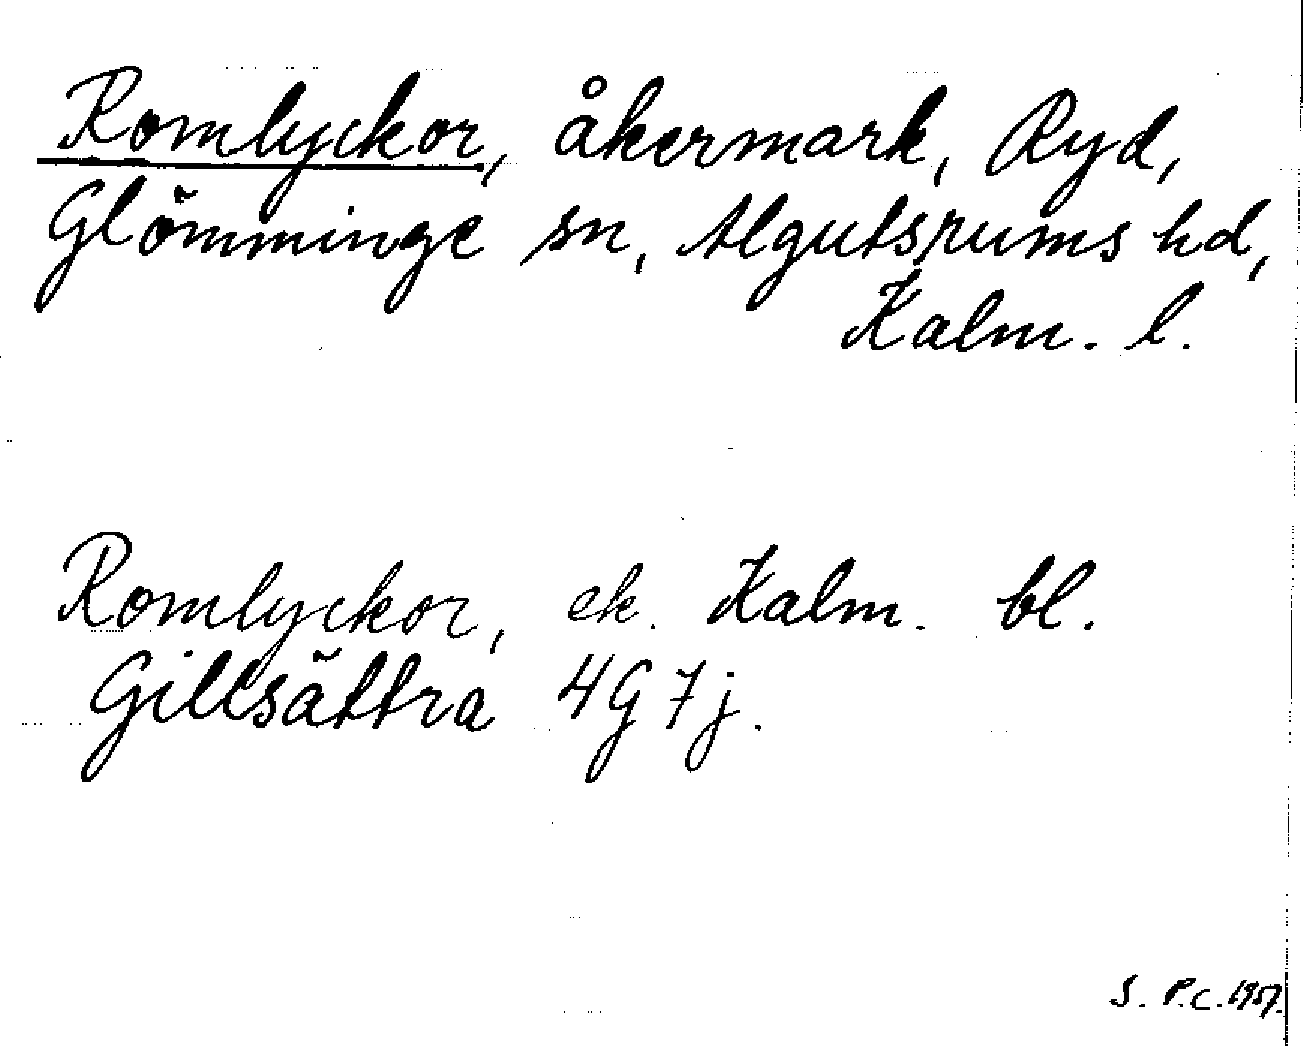 Romlyckor, åkermark, Ryd,
Glömminge sn, Algutsrums hd,
Kalm. l.
Romlyckor, ek. Kalm. bl.
Gillsättra 4G7j.
S. P.C. 1957.